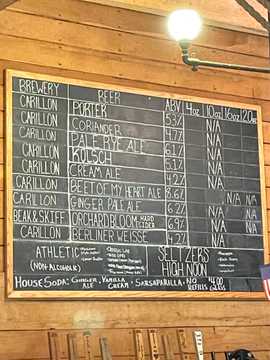 BREWERY BEER ABV 4oz 10oz 16oz 20oz
CARILLON PORTER 5.3%
CARILLON CORIANDER 4.7% N/A
CARILLON PALE RYE ALE 6.1% N/A
CARILLON KÖLSCH 5.1% N/A
CARILLON CREAM ALE 4.2% N/A
CARILLON BEET OF MY HEART ALE 8.6% N/A N/A
CARILLON GINGER PALE ALE 6.2% N/A
BEAK & SKIFF ORCHARD BLOOM HARD CIDER 6.9% N/A N/A
CARILLON BERLINER WEISSE 4.2% N/A
ATHLETIC
(NON-ALCOHOLIC)
SELTZERS
HIGH NOON
HOUSE SODA: GINGER ALE, VANILLA CREAM, SARSAPARILLA, NO REFILLS $4.00 GLASS